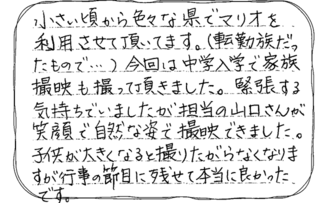 小さい頃から色々な県でマリオを
利用させて頂いてます。(転勤族だっ
たもので…)今回は中学入学で家族
撮映も撮って頂きました。緊張する
気持ちでいましたが担当の山口さんが
笑顔で自然な姿で撮映できました。
子供が大きくなると撮りたがらなくなりま
すが行事の節目に残せて本当に良かった
です。